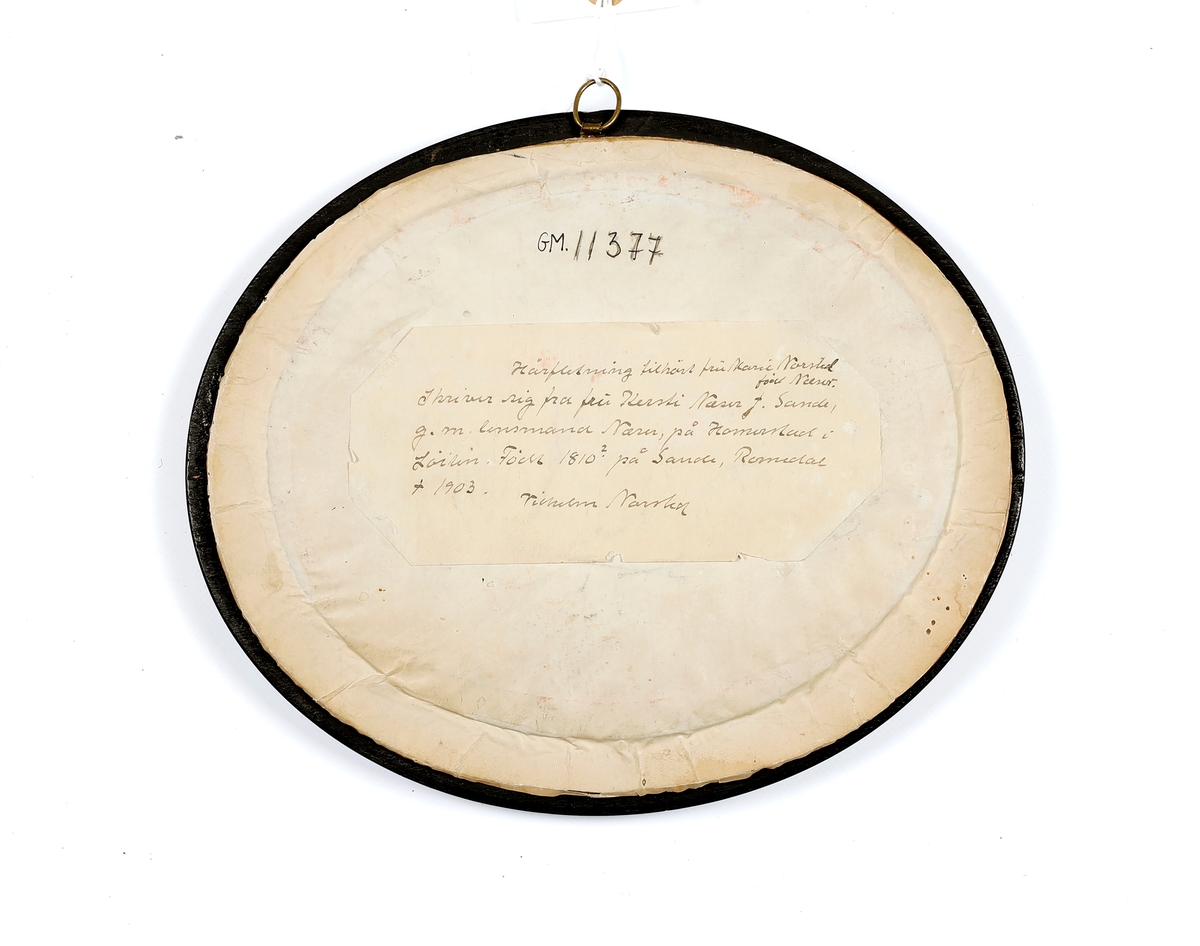 GM. 11377
Hårfletning tilhørt frü Marie Norsted
født Næser.
Skriver sig fra frü Kersti Næser f. Sande,
g. m. lensmand Næser, på Homerstad i
Løiten. Født 1810? på Sande, Romedal
† 1903.
Vilhelm Norsted